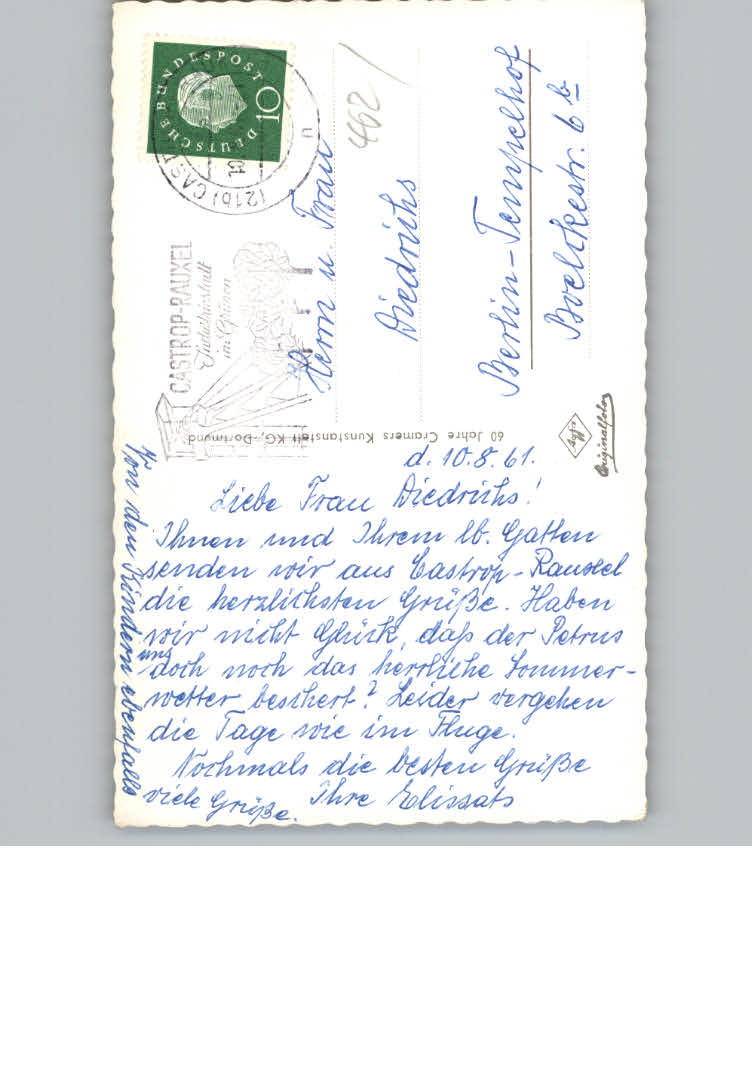 DEUTSCHE BUNDESPOST
10
(21b) CAST
u
CASTROP-RAUXEL
Industriestadt
im Grünen
462/
Herrn u. Frau
Diedrichs
Berlin-Tempelhof
Boelckestr. 6 b
60 Jahre Cramers Kunstanstalt KG, Dortmund
Agfa
Originalfoto
d. 10.8.61.
Liebe Frau Diedrichs!
Ihnen und Ihrem lb. Gatten
senden wir aus Castrop-Rauxel
die herzlichsten Grüße. Haben
wir nicht Glück, daß der Petrus
uns doch noch das herrliche Sommer-
wetter beschert? Leider vergehen
die Tage wie im Fluge.
Nochmals die besten Grüße
Ihre Elissats
Von den Kindern ebenfalls
viele Grüße.